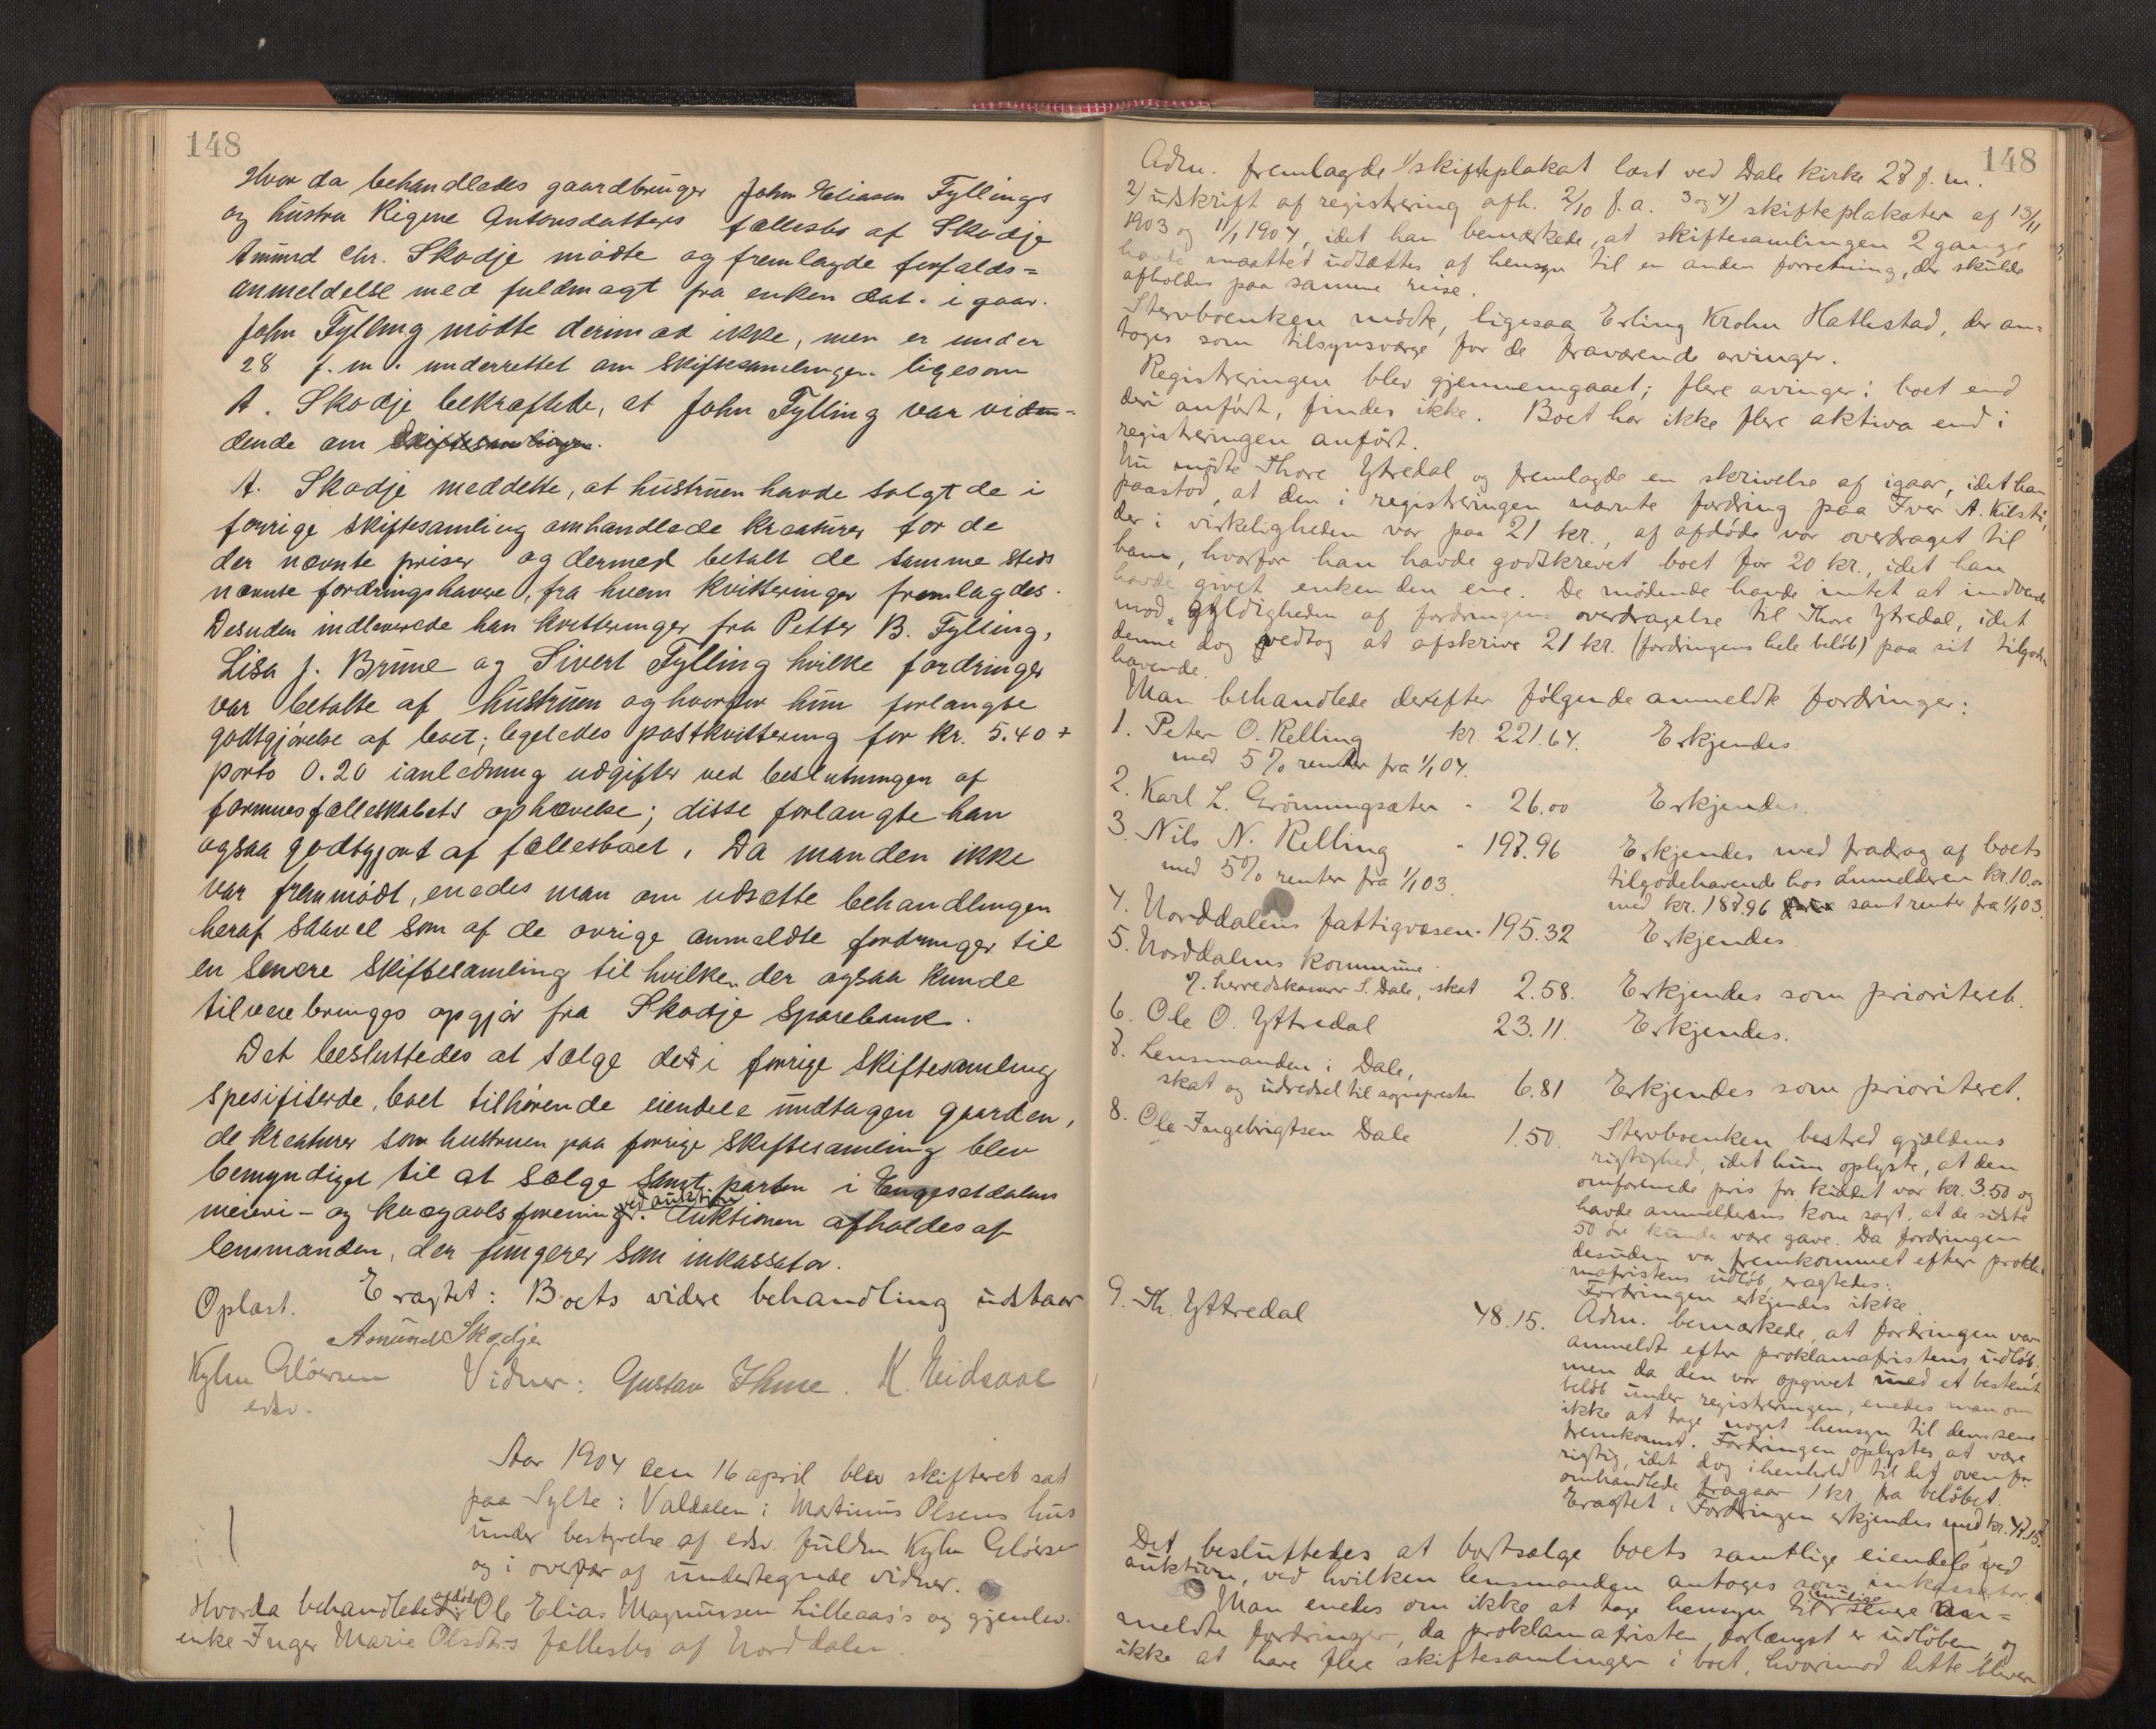 148
Hvor da behandledes gaardbruger John Eliasen Fyllings
og hustru Rigene Antonsdatters fællesbo af Skodje
Amund Chr. Skodje mødte og fremlagde forfalds=
anmeldelse med fuldmagt fra enken dat. i gaar.
John Fylling mødte derimod ikke, men er under
28 f. m. underrettet om skiftesamlingen ligesom
A. Skodje bekræftede, at John Fylling var viden=
dende om skiftesamlingen.
A. Skodje meddelte, at hustruen havde solgt de i
forrige skiftesamling omhandlede kreaturer for de
der nævnte priser og dermed betalt de samme steds
nævnte fordringshavere, fra hvem kvitteringer fremlagdes.
Desuden indleverede han kvitteringer fra Petter B. Fylling,
Lisa J. Brune og Sivert Fylling hvilke fordringer
var betalte af hustruen og hvorfor hun forlangte
godtgjørelse af boet; ligeledes postkvittering for kr. 5.40 +
porto 0.20 i anledning udgifter ved beslutningen af
formuesfælleskabets ophævelse; disse forlangte han
ogsaa godtgjort af fællesboet. Da manden ikke
var fremmødt, enedes man om udsætte behandlingen
heraf saavel som af de øvrige anmeldte fordringer til
en senere skiftesamling til hvilken der ogsaa kunde
tilveiebringes opgjør fra Skodje Sparebank.
Det besluttedes at sælge de i forrige skiftesamling
spesifiserde, boet tilhørende eiendele undtagen gaarden,
de kreaturer som hustruen paa forrige skiftesamling blev
bemyndiget til at sælge samt parten i Engesetdalens
meieri- og kvægavlsforening ved auktion. Auktionen afholdes af
lensmanden, der fungerer som inkassator.
Oplæst. Eragtet: Boets videre behandling udstaar
Amund Skodje
Kyhn Gløersen Vidner: Gustav Ihme. K. Eidsaae
edsv.
Aar 1904 den 16 april blev skifteret sat
paa Sylte i Valdalen i Martinus Olsens hus
under bestyrelse af edsv. fuldm Kyhn Gløersen
og i overvær af undertegnede vidner.
Hvorda behandledes afdøde Ole Elias Magnussen Lilleaas's og gjenlev.
enke Inger Marie Olsdrs fællesbo af Norddalen.
148
Adm. fremlagde 1/ skifteplakat læst ved Dale kirke 27 f. m.
2/ udskrift af registrering afh. 2/10 f. a. 3 og 4) skifteplakater af 13/11
1903 og 11/1 1904, idet han bemærkede, at skiftesamlingen 2 gange
havde maattet udsættes af hensyn til en anden forretning, der skulde
afholdes paa samme reise.
Stervboenken mødte, ligesaa Erling Krohn Hatlestad, der an=
toges som tilsynsværge for de fraværende arvinger.
Registreringen blev gjennemgaaet; flere arvinger i boet end
deri anført, findes ikke. Boet har ikke flere aktiva end i
registreringen anført.
Nu mødte Thore Ytredal og fremlagde en skrivelse af igaar, idet han
paastod, at den i registreringen nævnte fordring paa Iver A. Kilsti,
der i virkeligheden var paa 21 kr., af afdøde var overdraget til
ham, hvorfor han havde godskrevet boet for 20 kr., idet han
havde givet enken den ene. De mødende havde intet at indvende
mod gyldigheden af fordringens overdragelse til Thore Ytredal, idet
denne dog vedtog at afskrive 21 kr. (fordringens hele beløb) paa sit tilgode
havende.
Man behandlede derefter følgende anmeldte fordringer:
1. Peter O. Relling kr. 221.64. Erkjendes.
med 5% renter fra 1/1 04.
2. Karl L. Grønningsæter - 26.00 Erkjendes.
3. Nils N. Relling - 197.96 Erkjendes med fradrag af boets
med 5% renter fra 1/1 03. tilgodehavende hos anmelderen kr. 10.00
med kr. 187.96 samt renter fra 1/1 03.
4. Norddalens fattigvæsen - 195.32 Erkjendes.
5. Norddalens kommune
v. herredskasserer S. Dale, skat 2.58. Erkjendes som prioriteret.
6. Ole O. Yttredal 23.11. Erkjendes.
7. Lensmanden i Dale,
skat og udredsel til sognepresten 6.81 Erkjendes som prioriteret.
8. Ole Ingebrigtsen Dale 1.50. Stervboenken bestred gjældens
rigtighed, idet hun oplyste, at den
omforenede pris for kiddet var kr. 3.50 og
havde anmelderens kone sagt, at de sidste
50 øre kunde være gave. Da fordringen
desuden var fremkommet efter prokla-
mafristens udløb, eragtedes:
Fordringen erkjendes ikke.
9. Th. Yttredal 48.15. Adm. bemærkede, at fordringen var
anmeldt efter proklamafristens udløb,
men da den var opgivet med et bestemt
beløb under registreringen, enedes man om
ikke at tage noget hensyn til dens sene
fremkomst. Fordringen oplystes at være
rigtig, idet dog i henhold til det ovenfor
omhandlede fragaar 1 kr. fra beløbet.
Eragtet: Fordringen erkjendes med kr. 47.15.
Det besluttedes at bortsælge boets samtlige eiendele ved
auktion, ved hvilken lensmanden antoges som inkassator.
Man enedes om ikke at tage hensyn til mulige senere an=
meldte fordringer, da proklamafristen forlængst er udløben, og
ikke at have flere skiftesamlinger i boet, hvorimod dette bliver